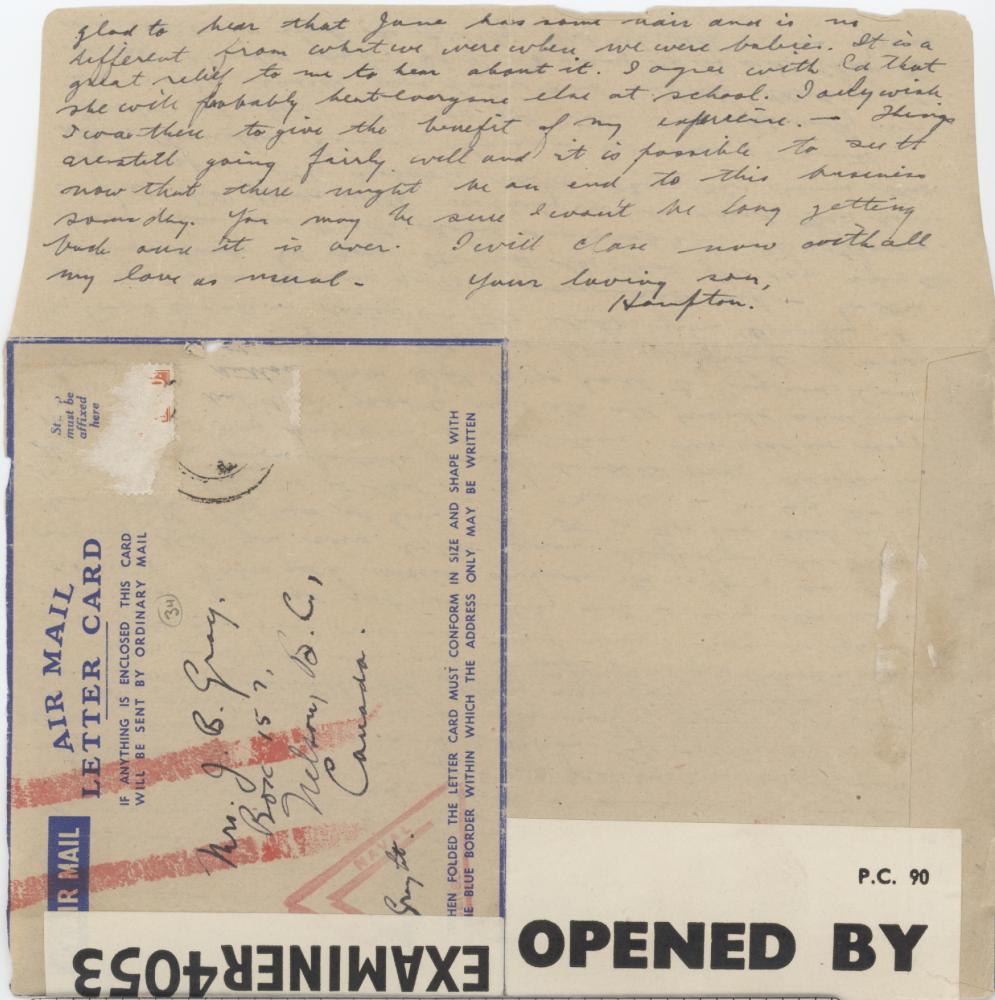 glad to hear that June has some hair and is no
different from what we were when we were babies. It is a
great relief to me to hear about it. I agree with Ed that
she will probably beat everyone else at school. I only wish
I was there to give the benefit of my experience. — Things
are still going fairly well and it is possible to see it
now that there might be an end to this business
some day. You may be sure I won't be long getting
back once it is over. I will close now with all
my love as usual -
Your loving son,
Hampton.
must be
affixed
here
AIR MAIL
LETTER CARD
IF ANYTHING IS ENCLOSED THIS CARD
WILL BE SENT BY ORDINARY MAIL
34
Mrs. J. B. Gray.
Box 157,
Nelson, B.C.,
Canada.
HEN FOLDED THE LETTER CARD MUST CONFORM IN SIZE AND SHAPE WITH
E BLUE BORDER WITHIN WHICH THE ADDRESS ONLY MAY BE WRITTEN
IR MAIL
NAVAL
EXAMINER 4053
P.C. 90
OPENED BY